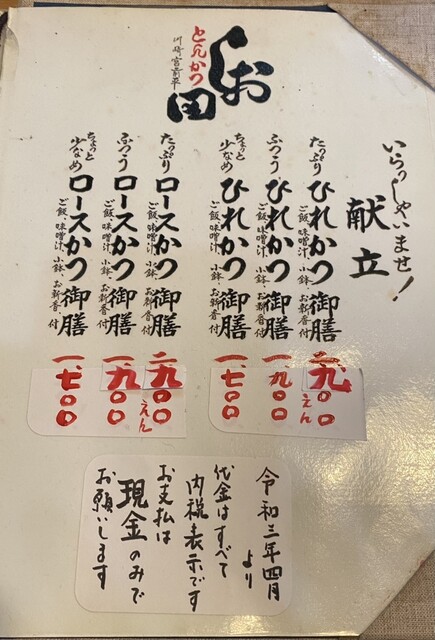 とんかつ
しお田
川崎・宮前平
いらっしゃいませ！
献立
たっぷり ひれかつ御膳
ご飯、味噌汁、小鉢、お新香、付
二、九〇〇えん
ふつう ひれかつ御膳
ご飯、味噌汁、小鉢、お新香、付
一、九〇〇
ちょっと少なめ ひれかつ御膳
ご飯、味噌汁、小鉢、お新香、付
一、七〇〇
たっぷり ロースかつ御膳
ご飯、味噌汁、小鉢、お新香、付
二、九〇〇えん
ふつう ロースかつ御膳
ご飯、味噌汁、小鉢、お新香、付
一、九〇〇
ちょっと少なめ ロースかつ御膳
ご飯、味噌汁、小鉢、お新香、付
一、七〇〇
令和三年四月
より
代金はすべて
内税表示です
お支払は
現金のみで
お願いします